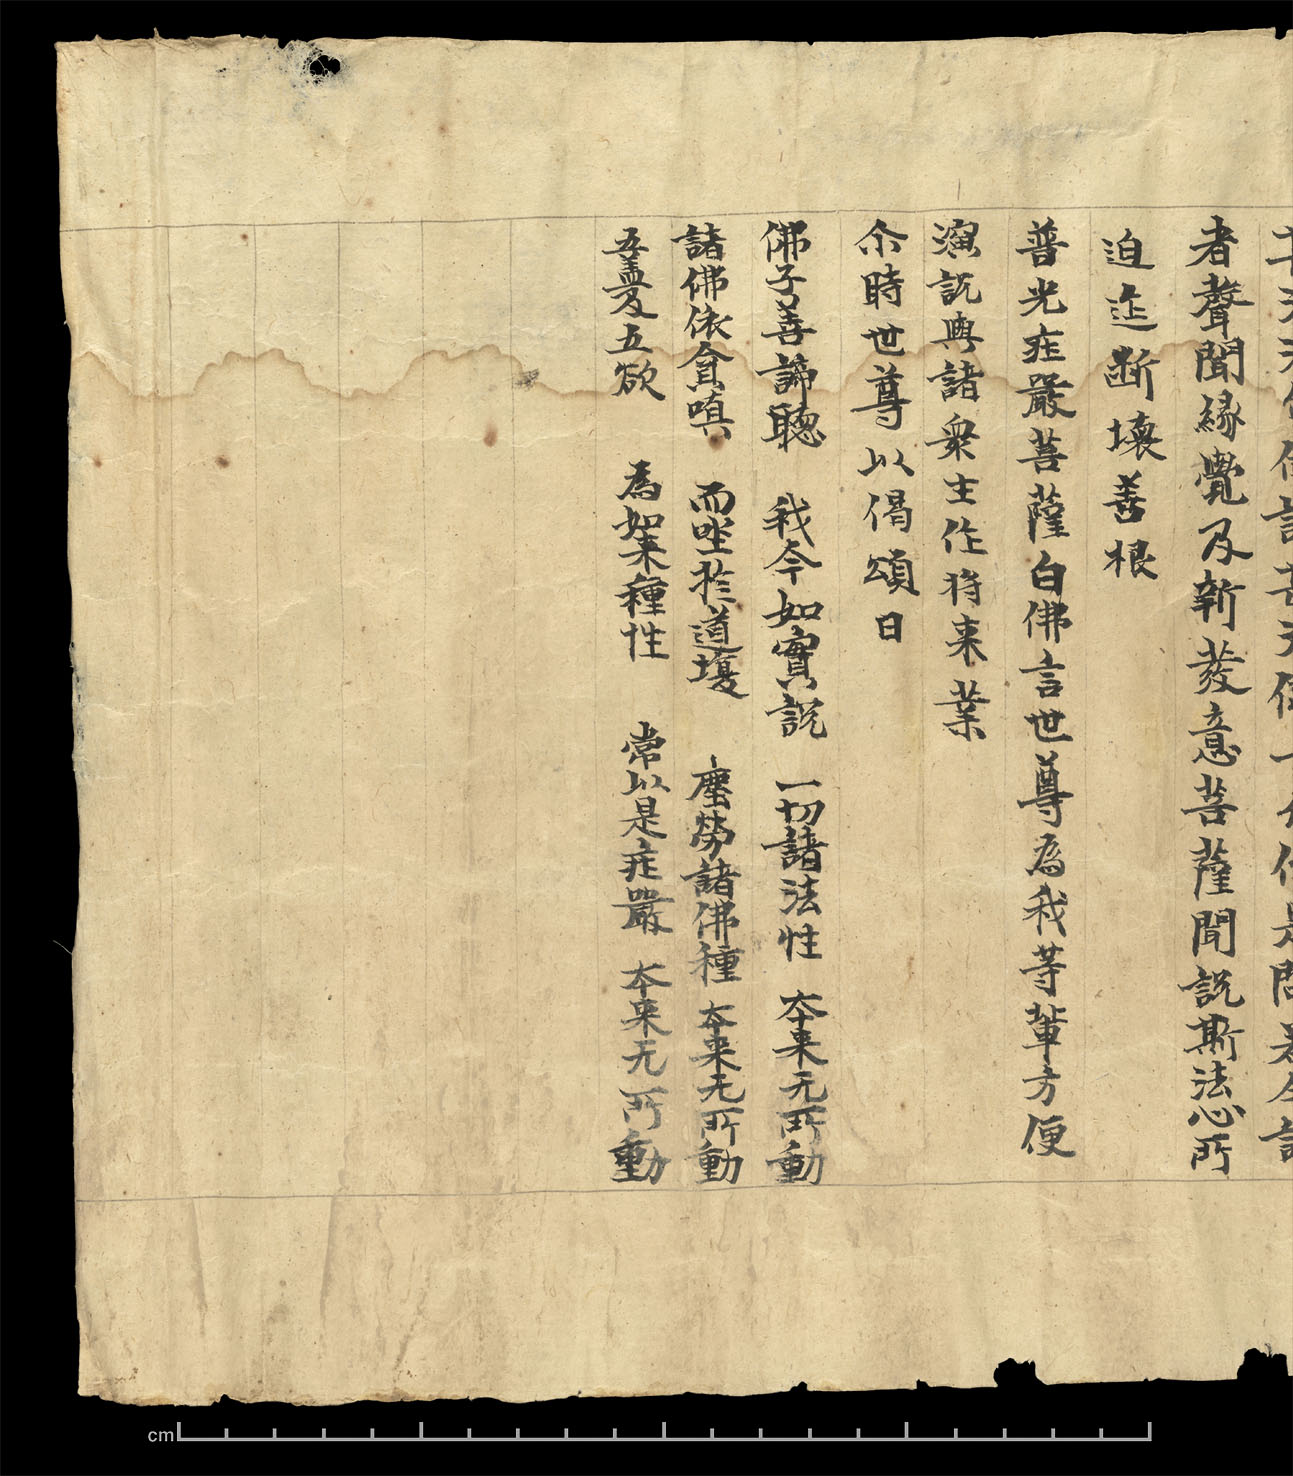 者聲聞緣覺及新發意菩薩聞說斯法心所
迫迮斷壞善根
普光庄嚴菩薩白佛言世尊為我等輩方便
演說與諸衆生作将来業
尒時世尊以偈頌曰
佛子善諦聽 我今如實說 一切諸法性 本来无所動
諸佛依貪嗔 而坐於道塲 塵勞諸佛種 本来无所動
五盖及五欲 為如来種性 常以是庄嚴 本来无所動